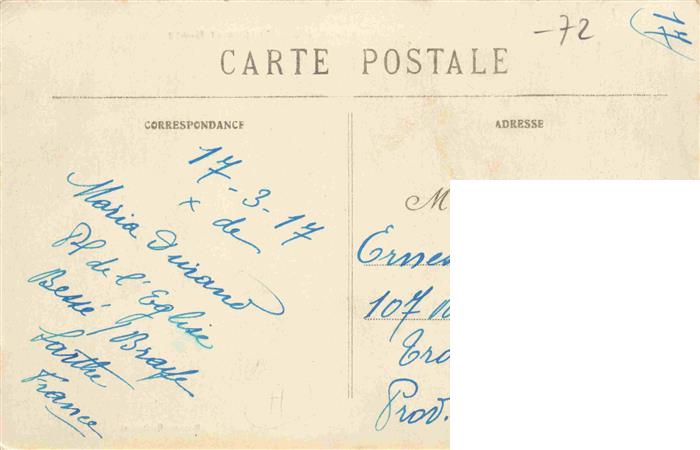 -72
17
CARTE POSTALE
CORRESPONDANCE
ADRESSE
17-3-17
x de
Maria Durand
Pl de l'Eglise
Bessé / Braye
Sarthe
France
M
Ernes
107
Tro
Prov.